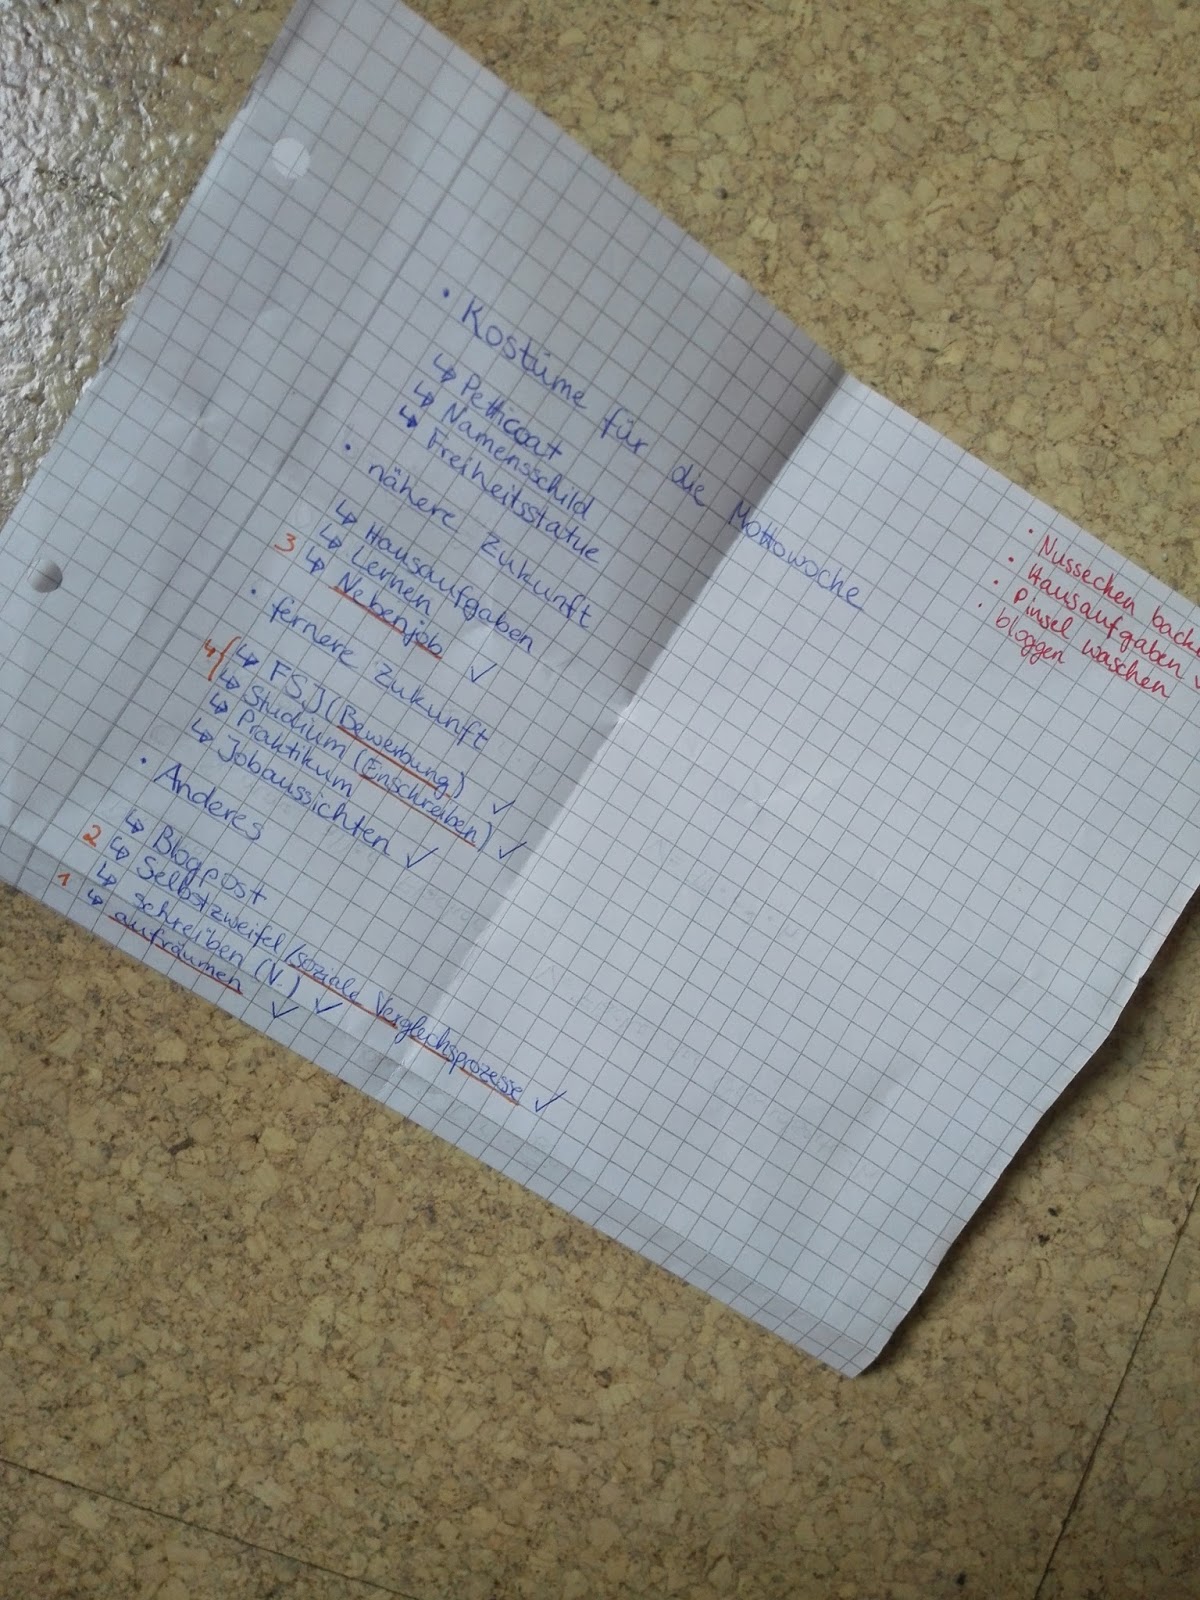 • Kostüme für die Mottowoche
↳ Petticoat
↳ Namensschild
↳ Freiheitsstatue
• nähere Zukunft
↳ Hausaufgaben
↳ Lernen
3 ↳ Nebenjob ✓
• fernere Zukunft
4 { ↳ FSJ (Bewerbung) ✓
↳ Studium (Einschreiben) ✓
↳ Praktikum
↳ Jobaussichten ✓
• Anderes
↳ Blogpost
2 ↳ Selbstzweifel/soziale Vergleichsprozesse ✓
↳ schreiben (V.) ✓
1 ↳ aufräumen ✓
• Nussecken backe
• Hausaufgaben ✓
• Pinsel waschen
• bloggen